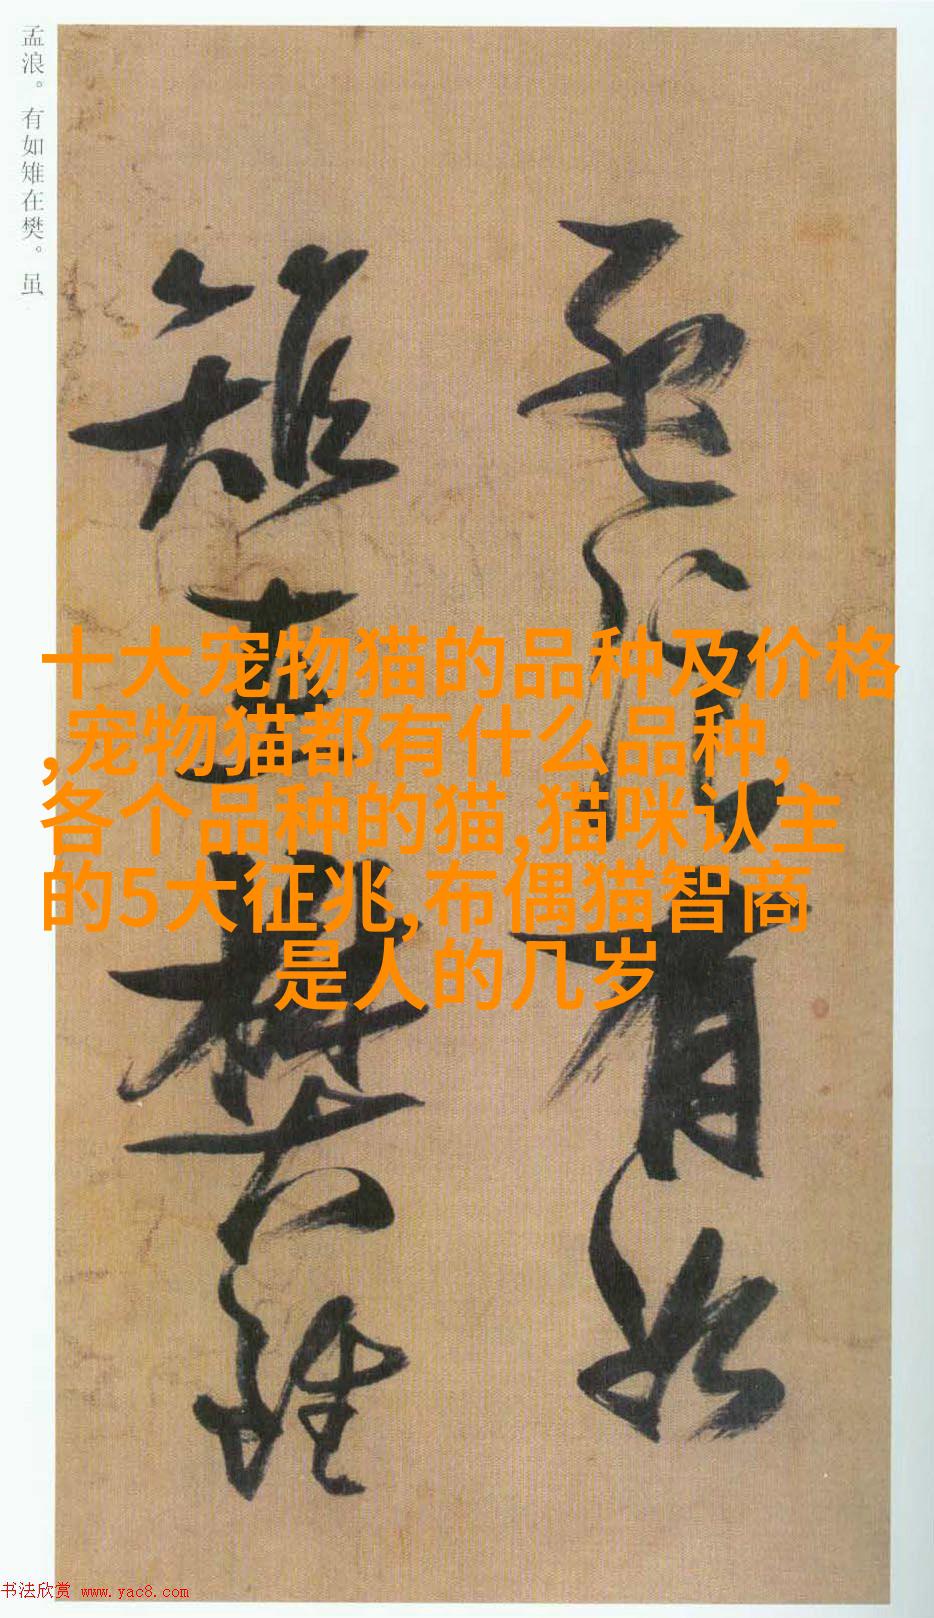 孟浪。有如雉在樊。虽
孟浪有如
雉在樊雖
十大宠物猫的品种及价格
,宠物猫都有什么品种,
各个品种的猫,猫咪认主
的5大征兆,布偶猫智商
是人的几岁
书法欣赏 www.yac8.com